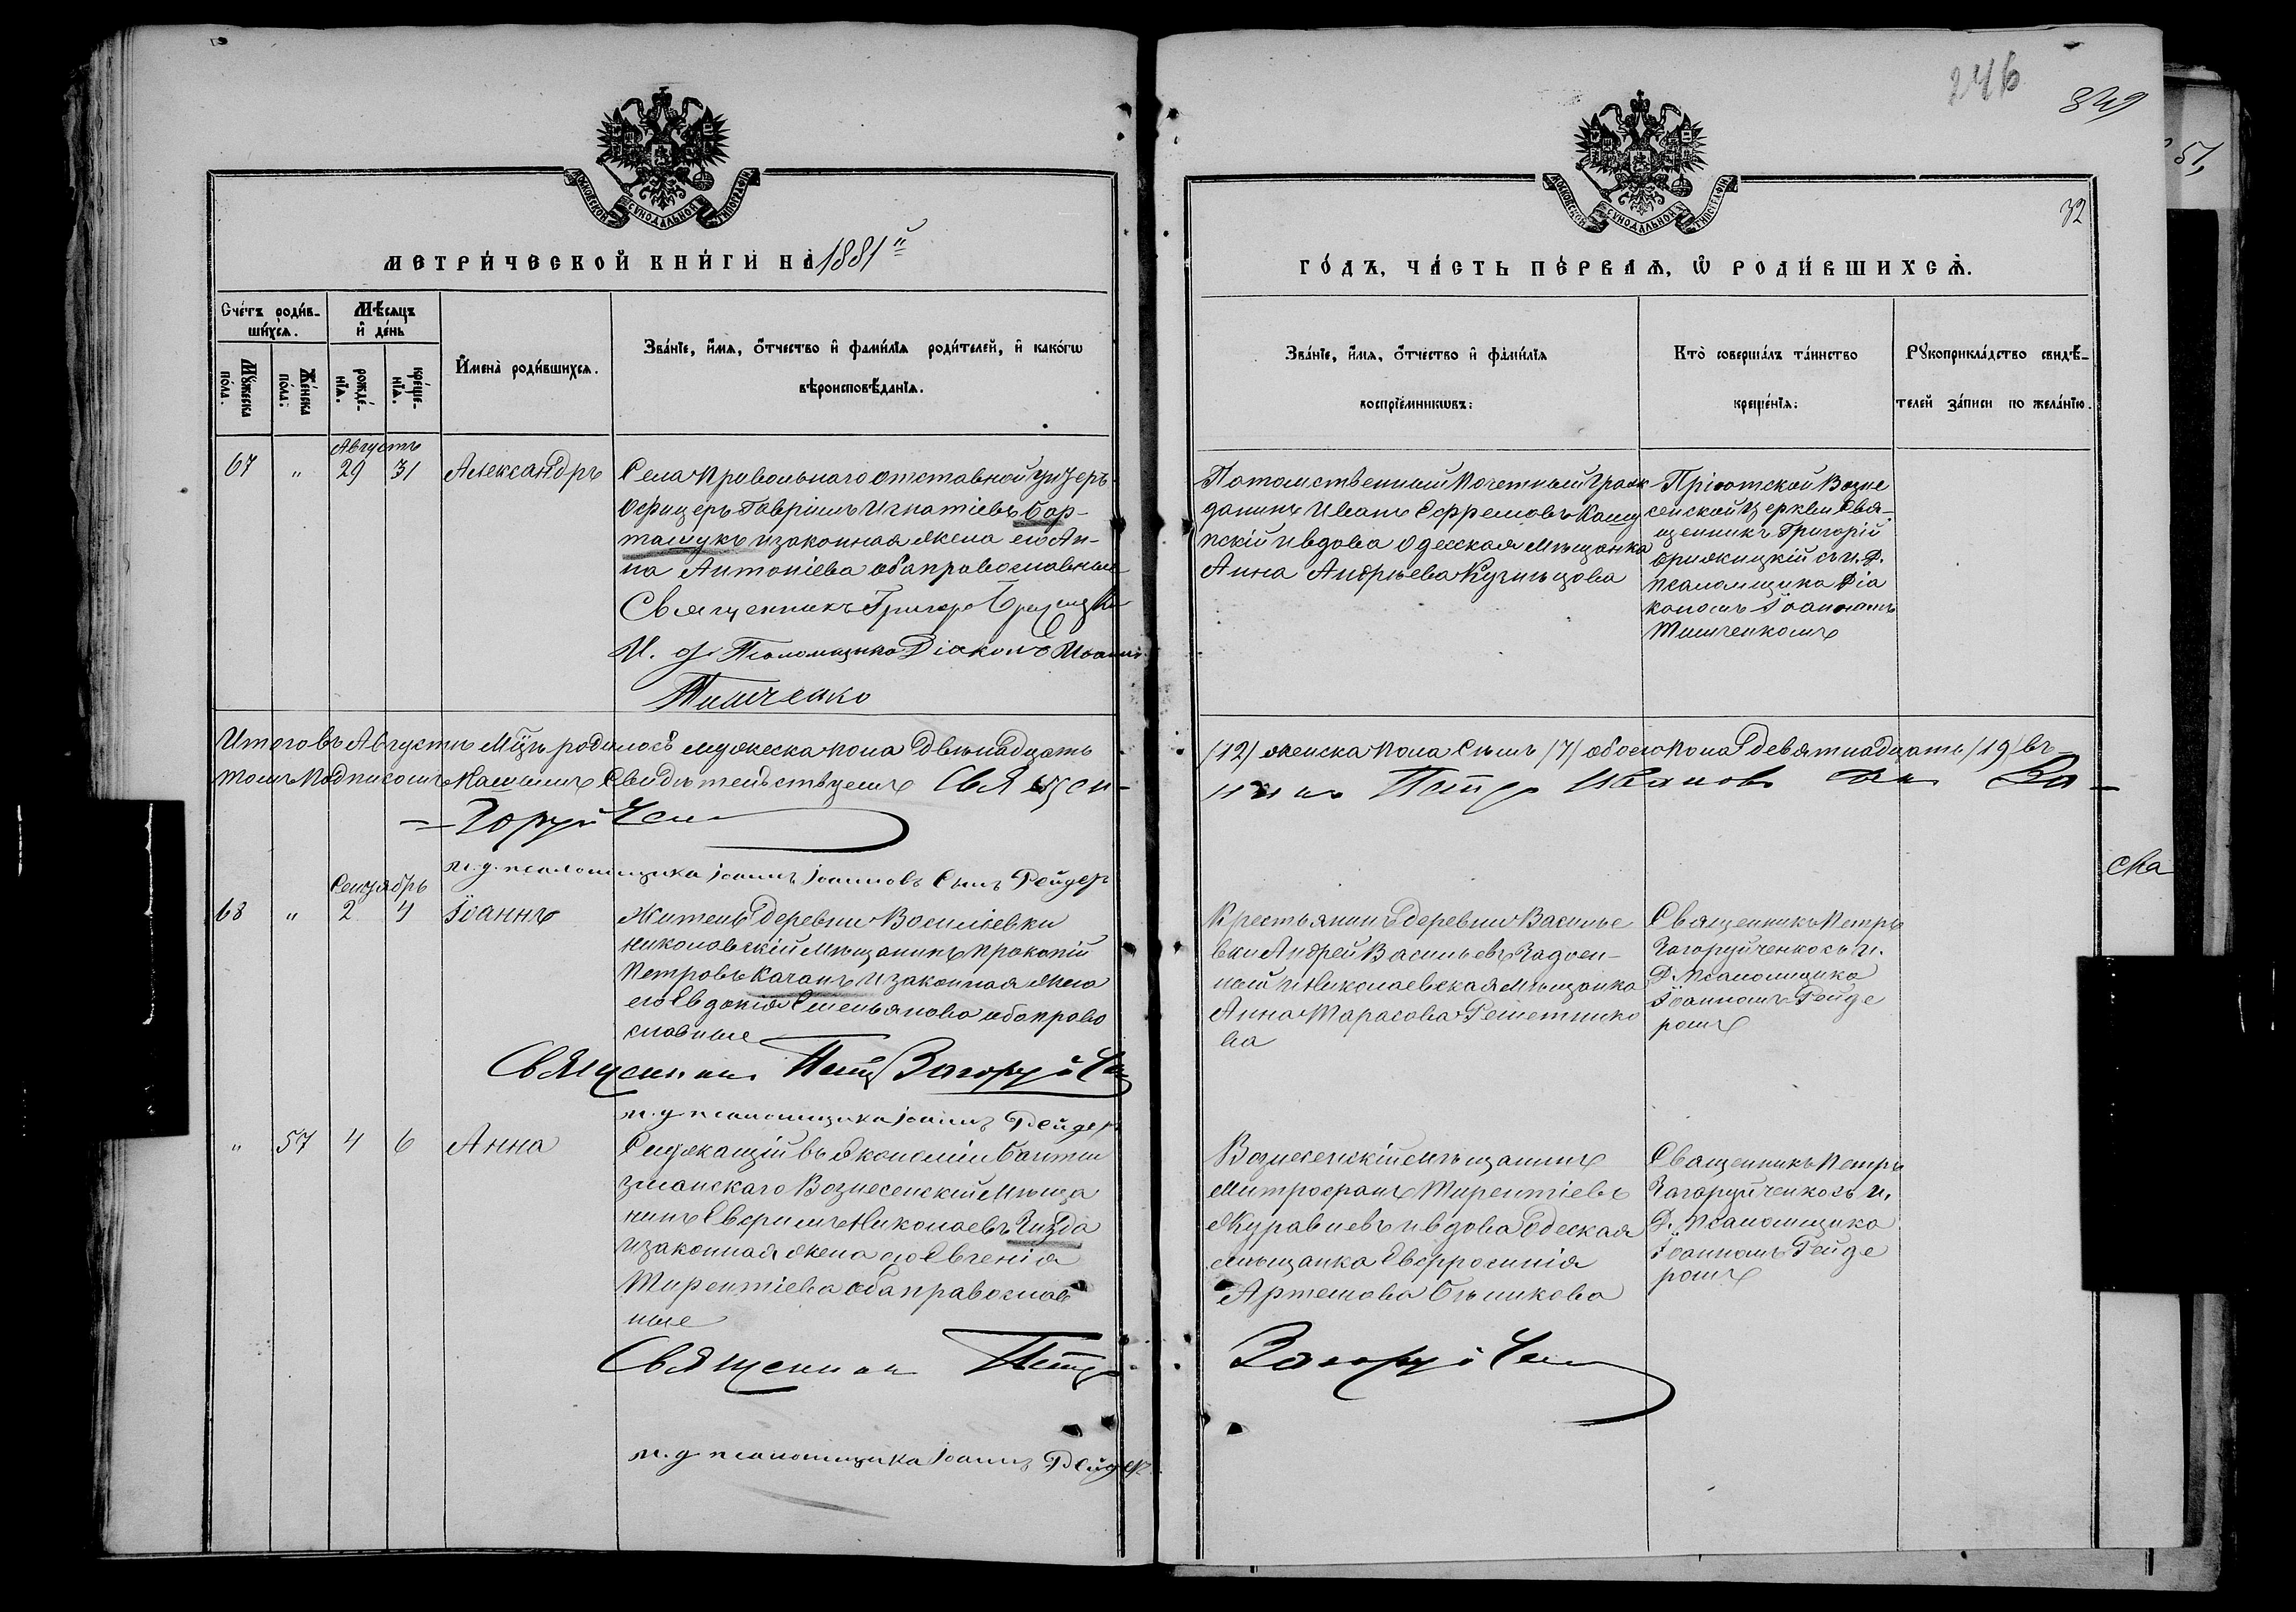 246
349
51,
32
МОСКОВСКОЙ СѴНОДАЛЬНОЙ ТИПОГРАФІИ
МЕТРИ́ЧЕСКОЙ КНИ́ГИ НА̀ 1881й
Сче́тъ роди́в-
ши́хся.
Мѣ́сяцъ
и҆ де́нь
Мꙋ́жеска
по́ла.
Же́нска
по́ла.
рожде́-
нїѧ.
креще́-
нїѧ.
И҆мена̀ роди́вшихся.
Зва́нїе, и҆́мѧ, ѻ҆́тчество и҆ фами́лїѧ роди́телей, и҆ како́гѡ
вѣроисповѣ́данїѧ.
Августъ
67 " 29 31 Александръ
Села Привольнаго отставной Унтеръ-
Офицеръ Гавріилъ Игнатіевъ Бор-
тащукъ и законная жена его Ан-
на Антоніева оба православные
Священникъ Григорі
И. д. Псаломщика Діаконъ Иоаннъ
Тимченко
Итого въ Августѣ Мцѣ родилось мужеска пола двѣнадцать
томъ подписомъ нашимъ Свидѣтельствуемъ Священ-
-горуйчен
и. д. псаломщика Іоаннъ Іоанновъ Сынъ Рейдер
Сентябрь
68 " 2 4 Іоаннъ
Житель деревни Василіевки
николаевскій мѣщанинъ Прокопій
Петровъ Качанъ и законная жена
его Евдокія Емельянова оба право
славные
Священник Петр Загоруйчен
и. д. псаломщика Іоаннъ Рейдер
" 57 4 6 Анна
Служащій въ экономіи Бантыш
змѣискаго Вознесенскій Мѣща
нинъ Николаевъ Гизда
и законная жена его Евгенія
Терентіева оба православ
ные
Священник Петр
и. д. псаломщика Іоаннъ Рейдер
МОСКОВСКОЙ СѴНОДАЛЬНОЙ ТИПОГРАФІИ
ГО́ДЪ, ЧА́СТЬ ПЕ́РВАѦ, Ѡ҆ РОДИ́ВШИХСѦ̀.
Зва́нїе, и҆́мѧ, ѻ҆́тчество и҆ фами́лїѧ
воспрїе́мникѡвъ:
Кто̀ соверша́лъ та́инство
креще́нїѧ:
Рꙋкоприкла́дство свидѣ́-
телей за́писи по жела́нїю.
Потомственный Почетный Граж
данинъ Иванъ Ефремовъ
и вдова Одесская мѣщанка
Анна Андреева Кузнецова
Пріютской Возне
сенской Церкви Свя-
щенникъ Григорій
съ и. д.
Псаломщика Діа
кономъ Іоанномъ
Тимченкомъ
(12) женска пола Семь (7) обоего пола девятнадцать (19) въ-
ник Петр Иванов За-
Крестьянинъ деревни Василье
вки Андрей Васильевъ Задоен-
ной и Николаевская мѣщанка
Анна Тарасова Решетнико
ва
Священникъ Петръ
Загоруйченко съ и.
Д. Псаломщика
Іоанномъ Рейде
ромъ
сна
Вознесенскій мѣщанинъ
Митрофанъ Терентіевъ
Журавлевъ и вдова Одеская
мѣщанка Евфросинія
Артемова Бѣликова
Священникъ Петръ
Загоруйченко съ и.
Д. Псаломщика
Іоанномъ Рейде
ромъ
Загоруйчен